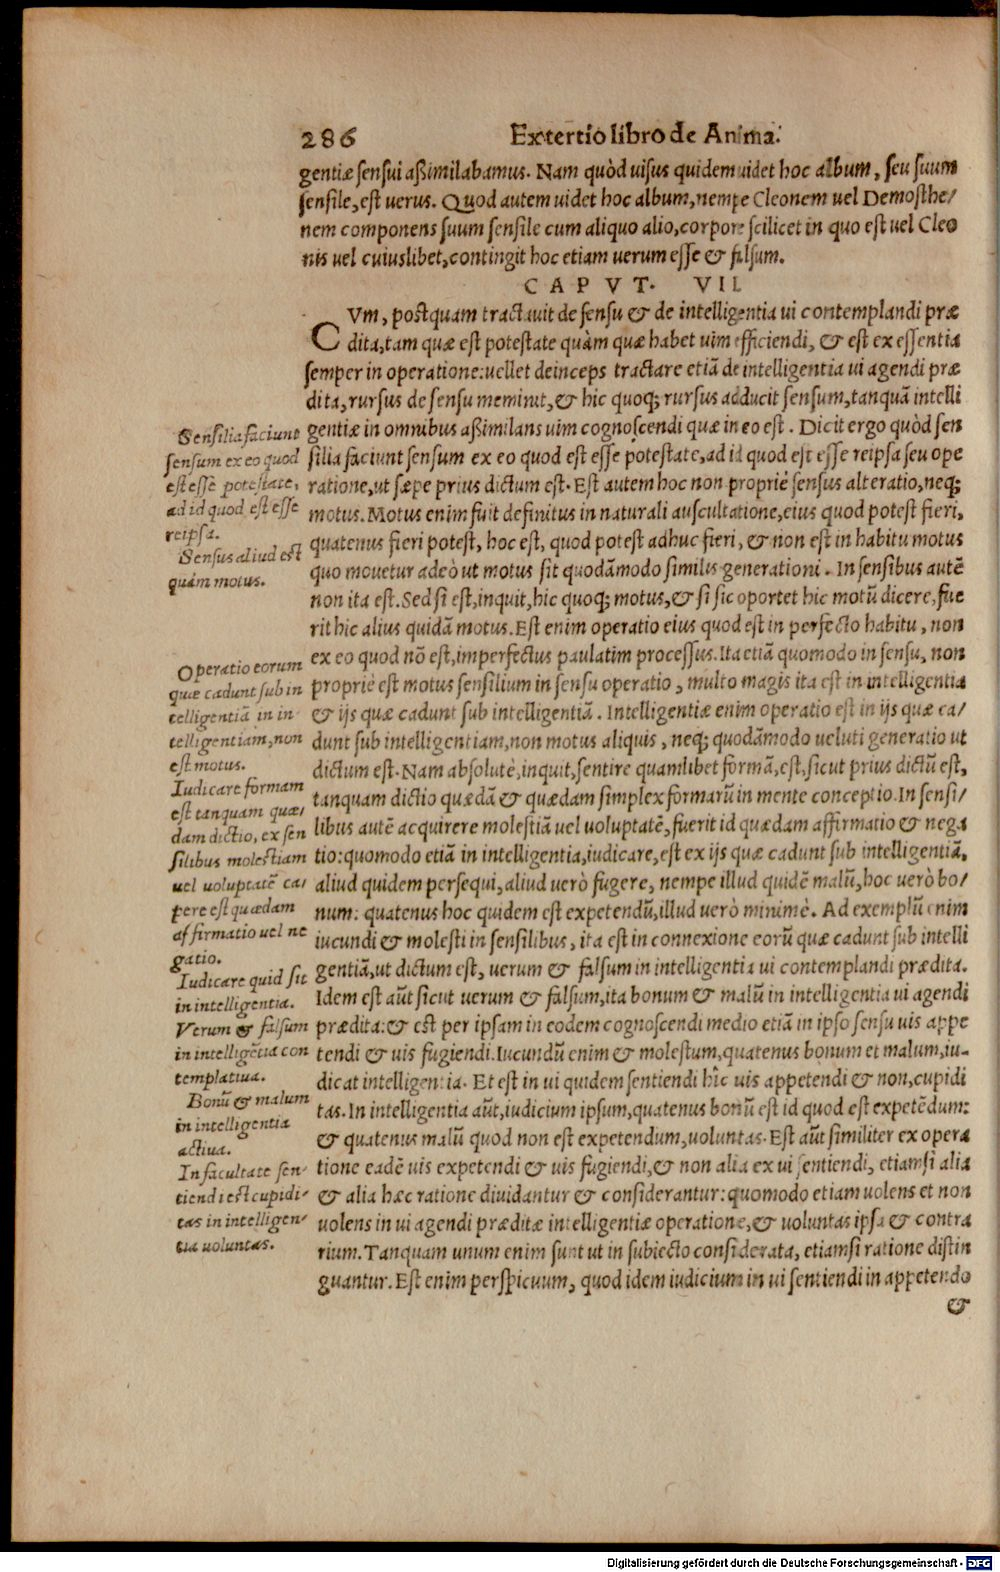 286 Ex tertio libro de Anima.
gentiæ sensui aßimilabamus. Nam quòd uisus quidem uidet hoc album, seu suum
sensile, est verus. Quod autem uidet hoc album, nempe Cleonem uel Demosthe/
nem componens suum sensile cum aliquo alio, corpore scilicet in quo est uel Cleo
nis uel cuiuslibet, contingit hoc etiam uerum esse & falsum.
CAPVT. VII
CVm, postquam tractauit de sensu & de intelligentia ui contemplandi præ
dita, tam quæ est potestate quàm quæ habet uim efficiendi, & est ex essentia
semper in operatione: uellet deinceps tractare etiã de intelligentia ui agendi præ
dita, rursus de sensu meminit, & hic quoq; rursus adducit sensum, tanquã intelli
gentiæ in omnibus aßimilans uim cognoscendi quæ in eo est. Dicit ergo quòd sen
silia faciunt sensum ex eo quod est esse potestate, ad id quod est esse reipsa seu ope
ratione, ut sæpe prius dictum est. Est autem hoc non propriè sensus alteratio, neq;
motus. Motus enim fuit definitus in naturali auscultatione, eius quod potest fieri,
quatenus fieri potest, hoc est, quod potest adhuc fieri, & non est in habitu motus
quo mouetur adeò ut motus sit quodãmodo similis generationi. In sensibus autẽ
non ita est. Sed si est, inquit, hic quoq; motus, & si sic oportet hic motũ dicere, fue
rit hic alius quidã motus. Est enim operatio eius quod est in perfecto habitu, non
ex eo quod nõ est, imperfectus paulatim processus. Ita etiã quomodo in sensu, non
propriè est motus sensilium in sensu operatio, multo magis ita est in intelligentia
& ijs quæ cadunt sub intelligentiã. Intelligentiæ enim operatio est in ijs quæ ca/
dunt sub intelligentiam, non motus aliquis, neq; quodãmodo ueluti generatio ut
dictum est. Nam absolutè, inquit, sentire quamlibet formã, est, sicut prius dictũ est,
tanquam dictio quædã & quædam simplex formarũ in mente conceptio. In sensi/
libus autẽ acquirere molestiã uel uoluptatẽ, fuerit id quædam affirmatio & nega
tio: quomodo etiã in intelligentia, iudicare, est ex ijs quæ cadunt sub intelligentiã,
aliud quidem persequi, aliud verò fugere, nempe illud quidẽ malũ, hoc verò bo/
num: quatenus hoc quidem est expetendũ, illud verò minimè. Ad exemplũ enim
iucundi & molesti in sensilibus, ita est in connexione eorũ quæ cadunt sub intelli
gentiã, ut dictum est, verum & falsum in intelligentia ui contemplandi prædita.
Idem est aũt sicut uerum & falsum, ita bonum & malũ in intelligentia ui agendi
prædita: & est per ipsam in eodem cognoscendi medio etiã in ipso sensu uis appe
tendi & uis fugiendi. Iucundũ enim & molestum, quatenus bonum et malum, iu-
dicat intelligentia. Et est in ui quidem sentiendi hîc uis appetendi & non, cupidi
tas. In intelligentia aũt, iudicium ipsum, quatenus bonũ est id quod est expetẽdum:
& quatenus malũ quod non est expetendum, uoluntas. Est aũt similiter ex opera
tione eadẽ uis expetendi & uis fugiendi, & non alia ex ui sentiendi, etiamsi alia
& alia hæc ratione diuidantur & considerantur: quomodo etiam uolens et non
uolens in ui agendi præditæ intelligentiæ operatione, & uoluntas ipsa & contra
rium. Tanquam unum enim sunt ut in subiecto considerata, etiamsi ratione distin
guantur. Est enim perspicuum, quod idem iudicium in ui sentiendi in appetendo
&
Sensilia faciunt
sensum ex eo quod
est esse potestate,
ad id quod est esse
reipsa.
Sensus aliud est
quàm motus.
Operatio eorum
quæ cadunt sub in
telligentiã in in-
telligentiam, non
est motus.
Iudicare formam
est tanquam quæ/
dam dictio, ex sen
silibus molestiam
uel uoluptatẽ ca/
pere est quædam
affirmatio uel ne
gatio.
Iudicare quid sit
in intelligentia.
Verum & falsum
in intelligẽtia con
templatiua.
Bonũ & malum
in intelligentia
actiua.
In facultate sen-
tiendi est cupidi/
tas in intelligen/
tia uoluntas.
Digitalisierung gefördert durch die Deutsche Forschungsgemeinschaft - DFG